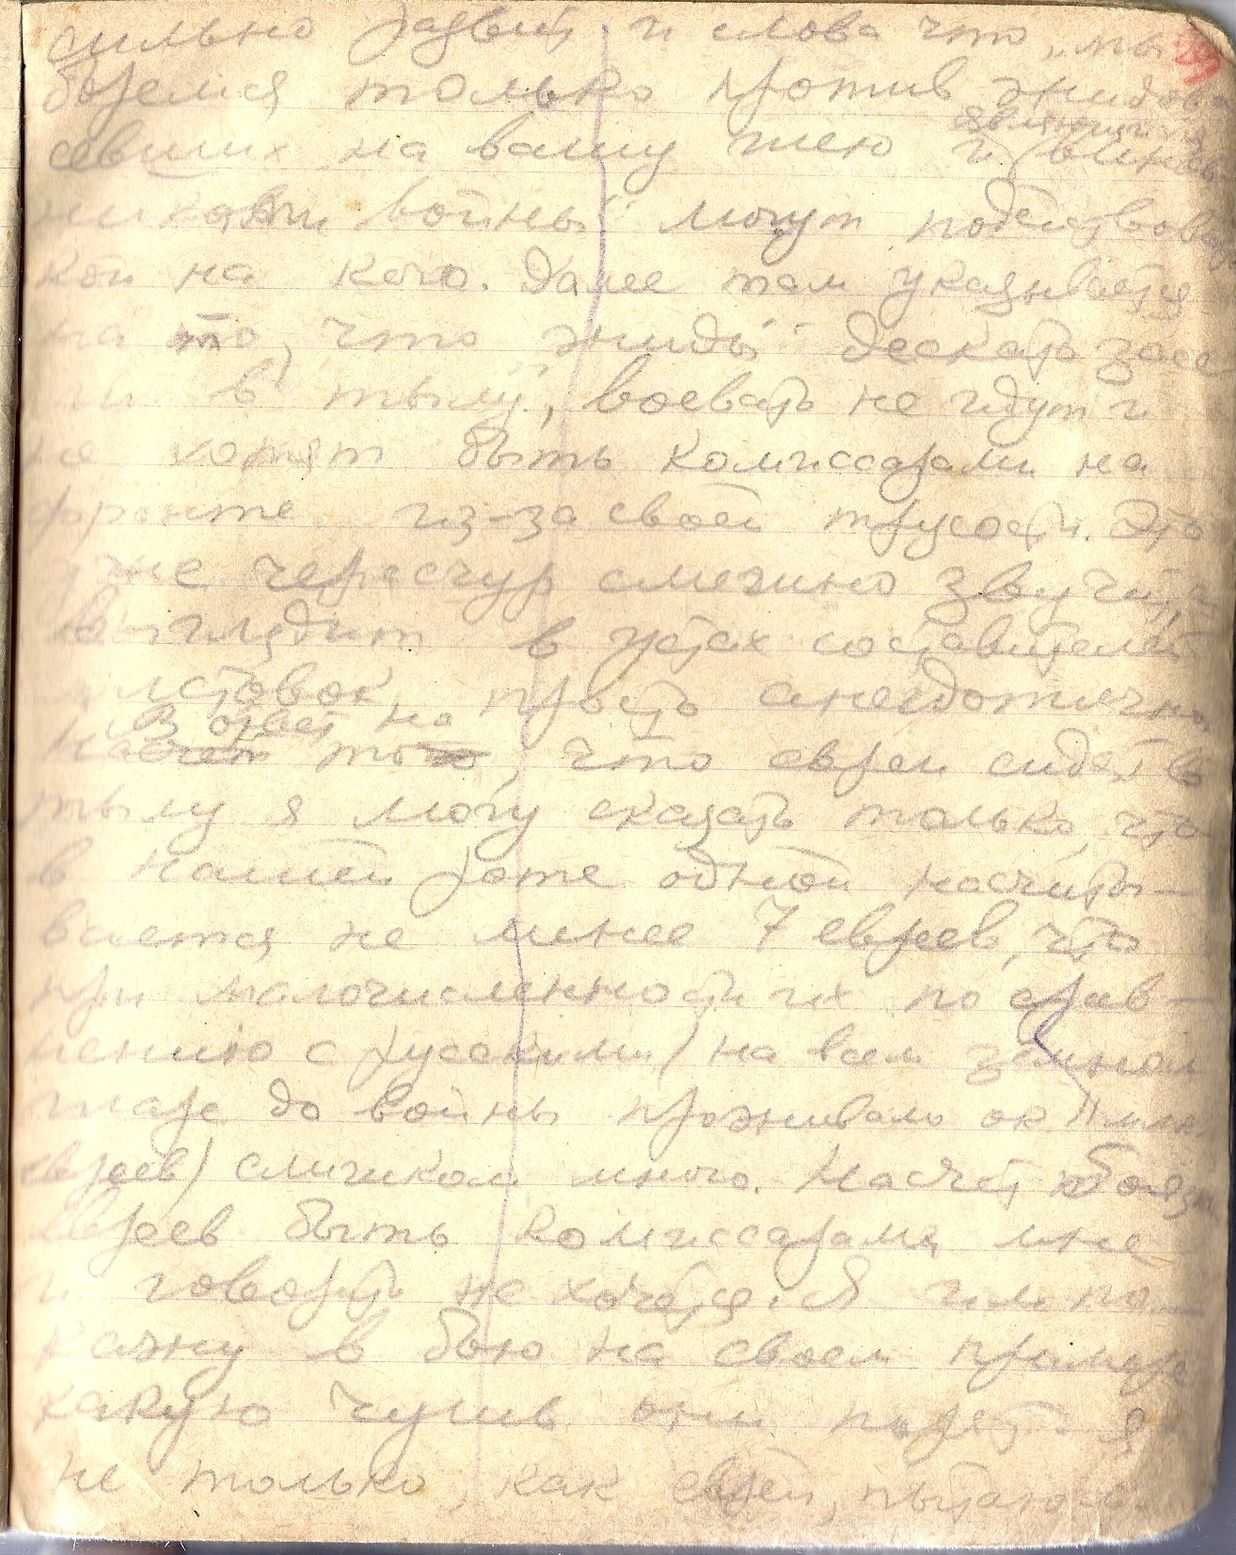 сильно развит и слова что „мы
боремся только против жидов
севших на вашу шею и являющихся винов-
никами войны" могут подействовать
кой на кого. Далее там указывается
на то, что „жиды" дескать засе
ли в „тылу", воевать не идут и
не хотят быть комиссарами на
фронте из-за своей трусости. Это
уже чересчур смешно звучит, а
выглядит в устах составителей
листовок просто анекдотично
В ответ на то, что евреи сидят в
тылу я могу сказать только, что
в нашей роте одной насчиты-
вается не менее 7 евреев, что
при малочисленности их по срав-
нению с русскими (на всем земном
шаре до войны проживало ок 11 млн.
евреев) слишком много. Насчет боязни
евреев быть комиссарами мне
и говорить не хочется. Я им по-
кажу в бою на своем примере
какую чушь они порят. Я
не только, как еврей, пытаюсь